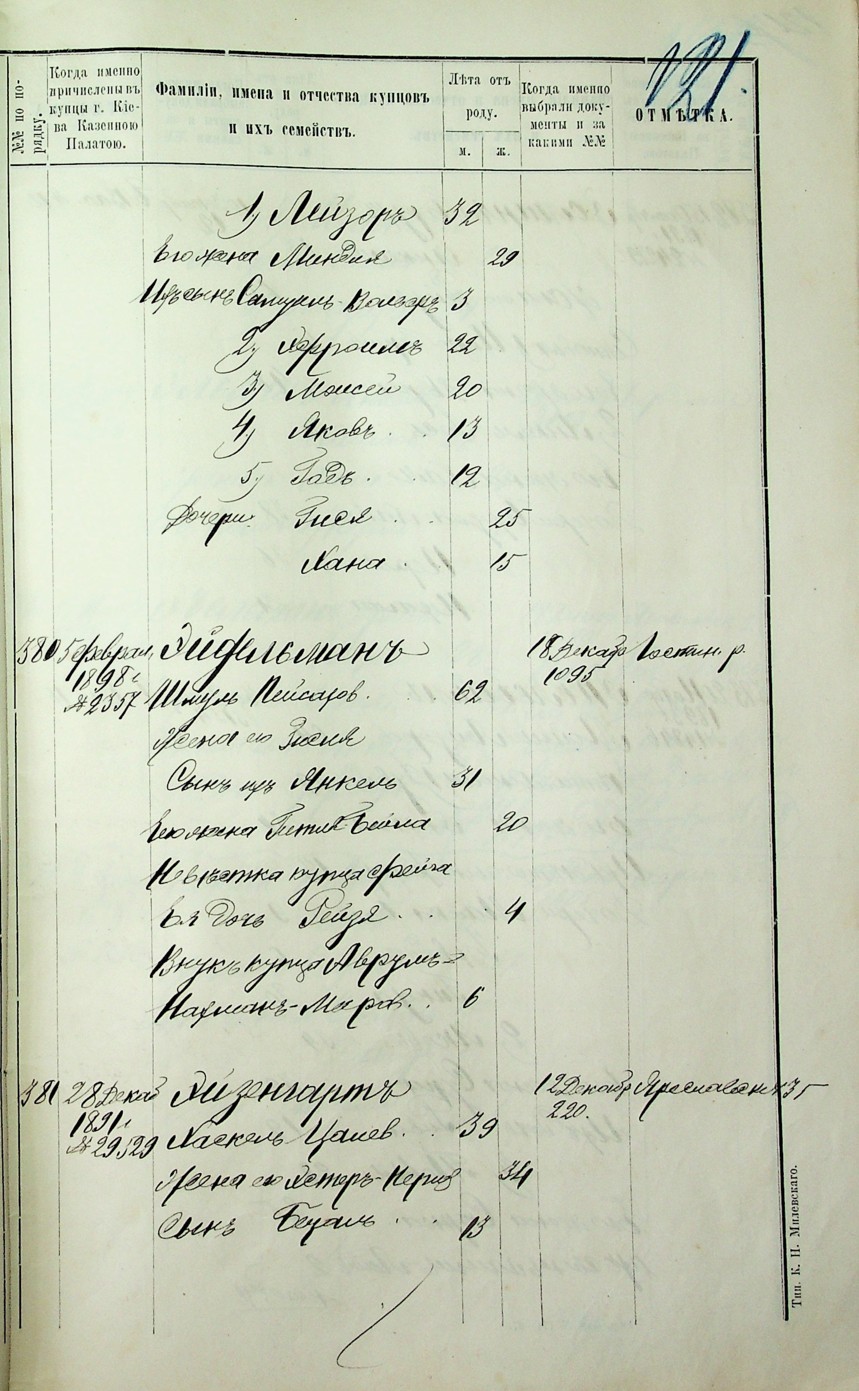 121.
№№ по по-
рядку.
Когда именно
причислены въ
купцы г. Кіе-
ва Казенною
Палатою.
Фамиліи, имена и отчества купцовъ
и ихъ семействъ.
Лѣта отъ
роду.
м. ж.
Когда именно
выбрали доку-
менты и за
какими №№
ОТМѢТКА.
1) Лейзоръ 32
Его жена Миндля 29
Ихъ сынъ Самуилъ- 3
2) Эфроимъ 22
3) Моисей 20
4) Яковъ 13
5) Гадъ 12
Дочери: Гися 25
Хана 15
380 5 Феврал, Эйдельманъ 18 Декабр Гостин. р.
1898 г 1095
№ 2357 Шмуль Пейсахов. 62
Жена его
Сынъ ихъ Янкель 31
Его жена Гитля-Бейла 20
Невѣстка купца Фейга
Ея дочь Рейзя 4
Внукъ купца Аврумъ=
Нахманъ- 6
381 28 Декаб Эйзенгартъ 12 Декабр Ярославск № 35
1891 г 220.
№ 29529 Хаскель Цалев. 39
Жена его Эстеръ- 34
Сынъ Бецаль 13
Тип. К. Н. Милевскаго.